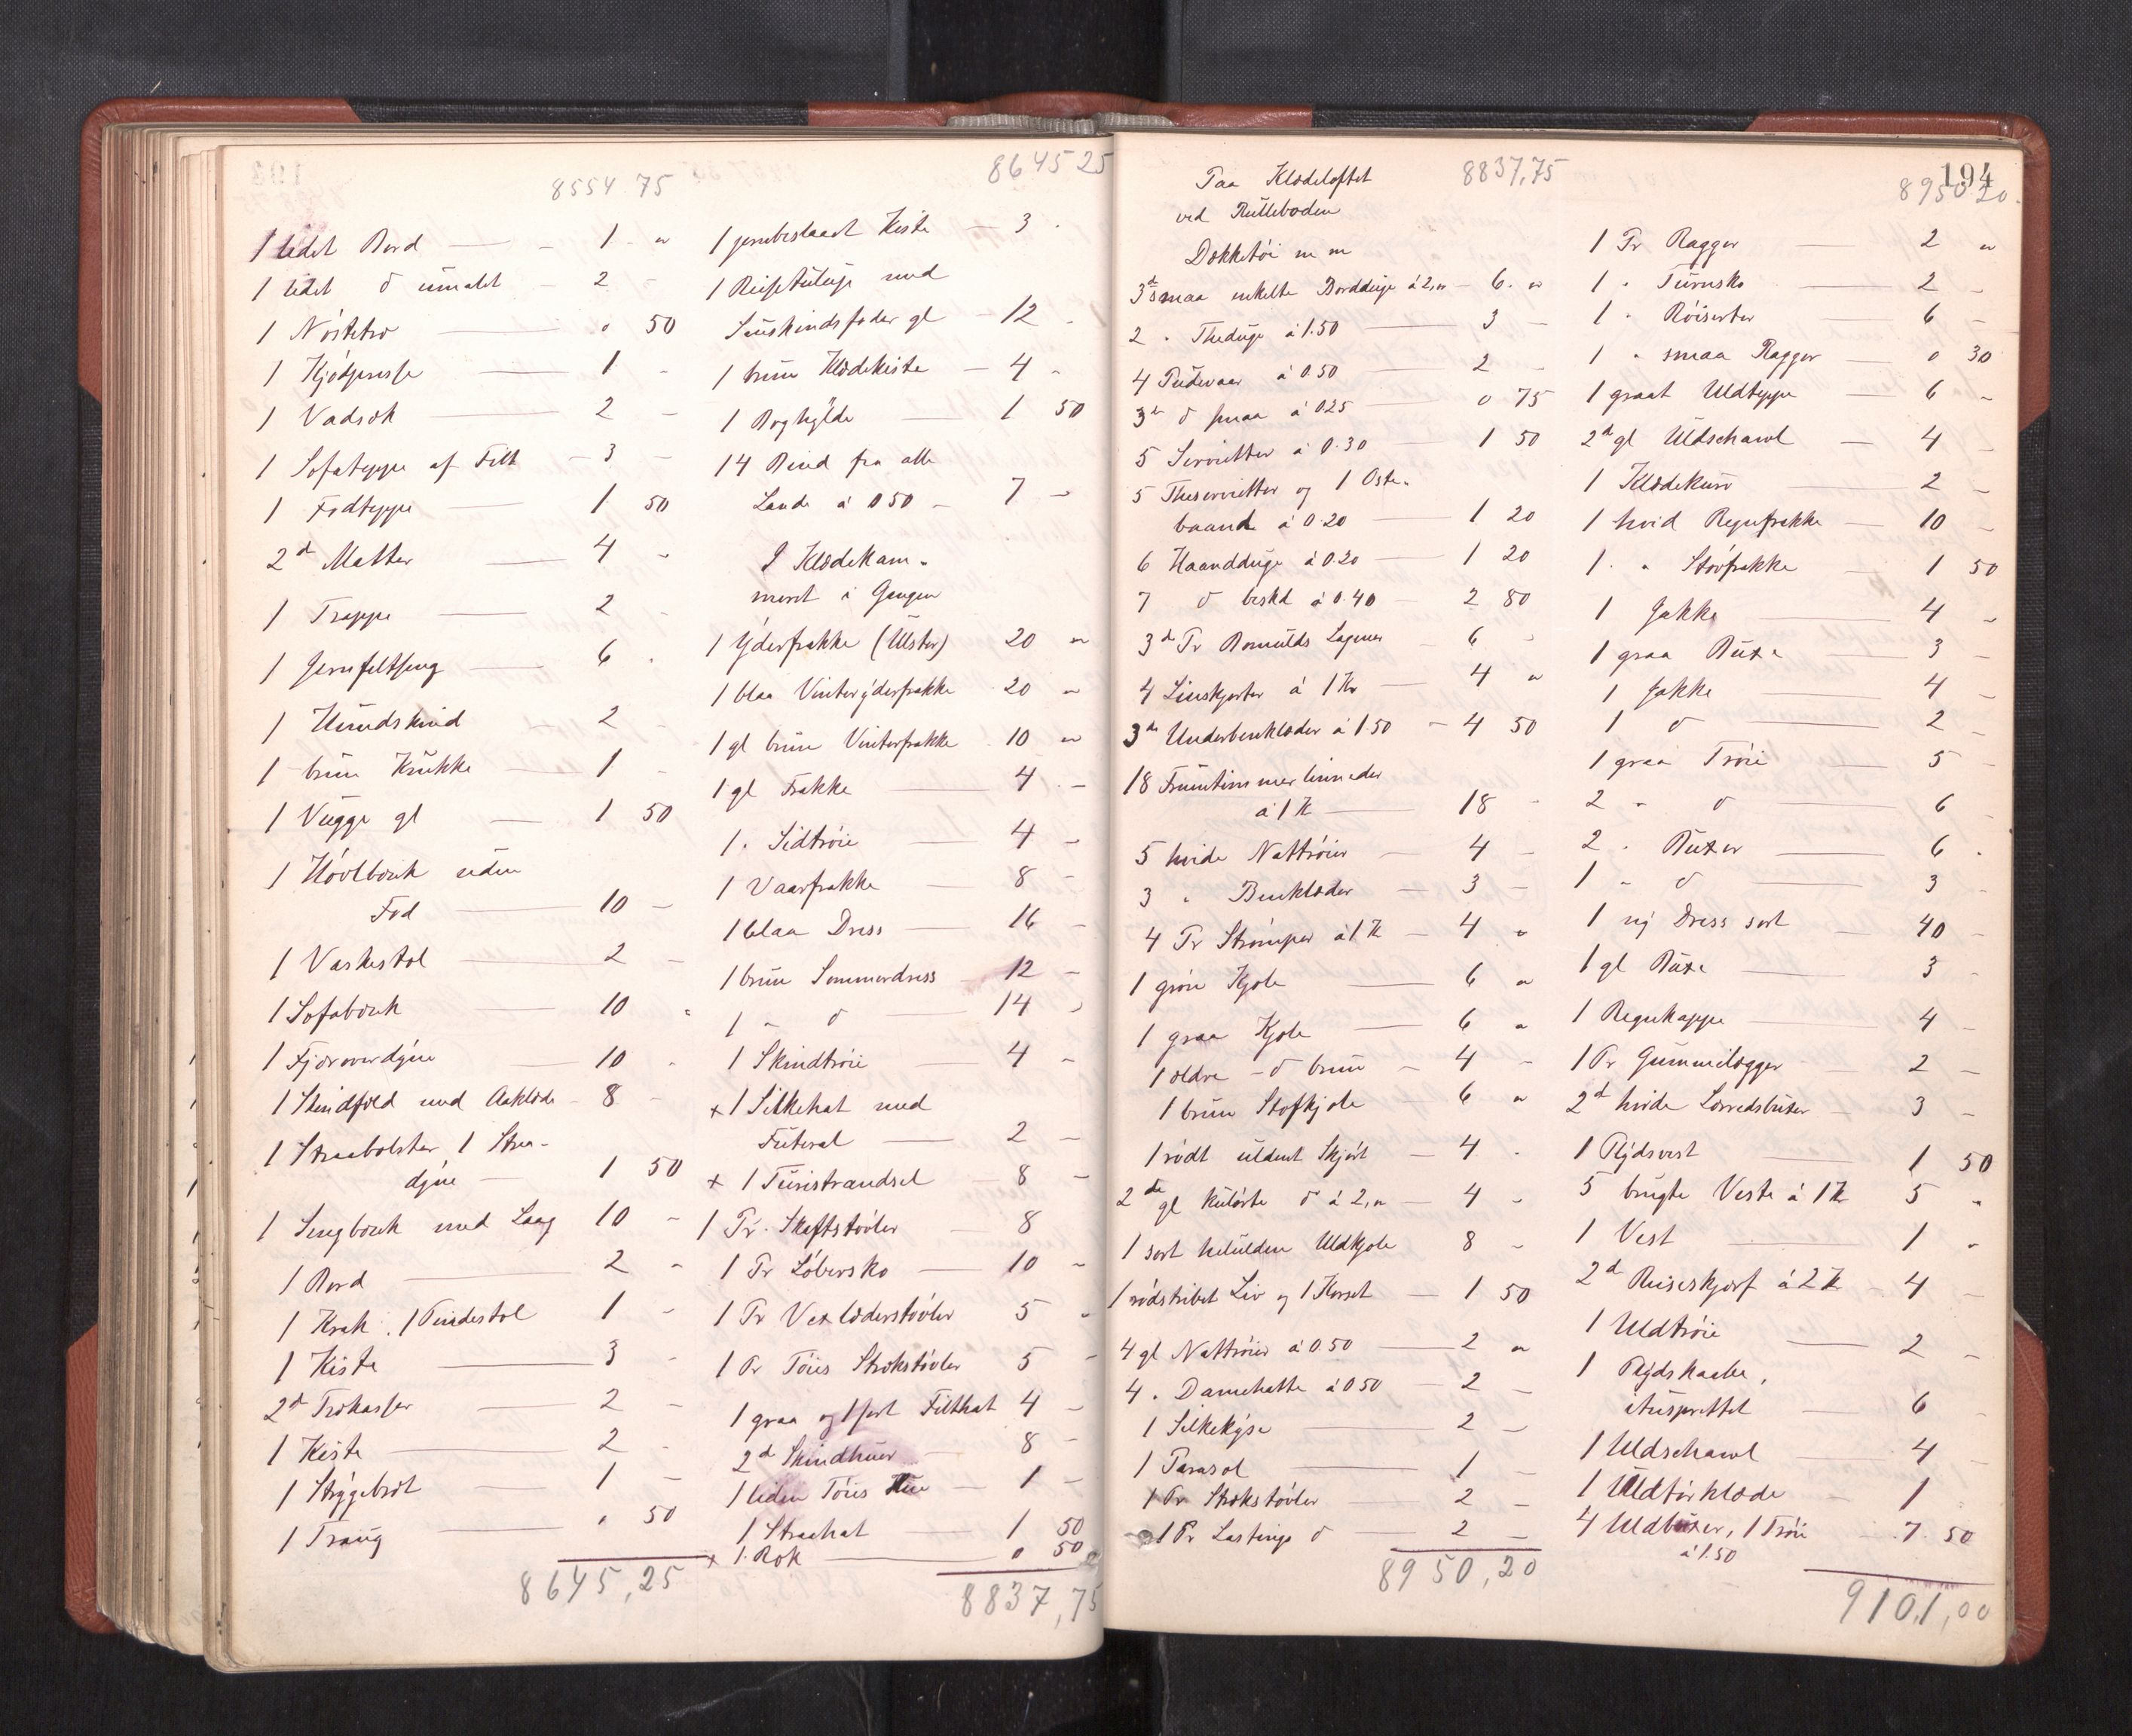 8554 75
1 lidet Bord — 1 "
1 lidet d umalet — 2 -
1 Nøstetræ — " 50
1 Kjødpresse — 1 -
1 Vadsæk — 2 -
1 Sofateppe af Filt — 3 -
1 Fodteppe — 1 50
2d Matter — 4 -
1 Trappe — 2 -
1 Jernfeltseng — 6 -
1 Hundskind — 2 -
1 brun Krukke — 1 -
1 Vugge gl — 1 50
1 Høvlbænk uden
Fod — 10 -
1 Vaskestol — 2 -
1 Sofabænk — 10 "
1 Fjæroverdyne — 10 -
1 Skindfeld med Aaklæde - 8 -
1 Straabolster, 1 Straa-
dyne — 1 50
1 Sengbænk med Laag 10 -
1 Bord — 2 -
1 Krak, 1 Pindestol 1 -
1 Kiste — 3 -
2d Trækasser — 2 -
1 Kiste — 2 -
1 Strygebræt — 1 -
1 Traug — " 50
8645,25
8645 25
1 jernbeslaaet Kiste — 3 -
1 Reisetulup med
Sauskindsfoder gl — 12 -
1 brun Klædekiste — 4 -
1 Boghylde — 1 50
14 Bind fra alle
Lande á 0 50 — 7 -
I Klædekam-
meret i Gangen
1 Yderfrakke (Ulster) 20 "
1 blaa Vinteryderfrakke 20 "
1 gl brun Vinterfrakke 10 "
1 gl Frakke — 4 -
1 " Sidtrøie — 4 -
1 Vaarfrakke — 8 -
1 blaa Dress — 16 -
1 brun Sommerdress 12 -
1 " d — 14 -
1 Skindtrøie — 4 -
x 1 Silkehat med
Futeral — 2 -
x 1 Turistrandsel — 8 -
1 Pr. Skaftstøvler — 8
1 Pr Løbersko — 10 -
1 Pr Vexlæderstøvler 5 -
1 Pr Tøies Strokstøvler 5 -
1 graa og 1 sort Filthat 4 -
2d Skindhuer — 8 -
1 liden Tøies Hue — 1 -
1 Straahat 1 50
x 1 Rok — 0 50
8837,75
194
Paa Klædeloftet 8837,75
ved Rulleboden
Dækketøi m m
3de smaa enkelte Bordduge á 2," - 6 "
2 " Theduge á 1.50 — 3 -
4 Pudevaar á 0.50 — 2 -
3de d smaa á 0 25 — 0 75
5 Servietter á 0.30 — 1 50
5 Theservietter og 1 Oste-
baand á 0.20 — 1 20
6 Haandduge á 0.20 — 1 20
7 d beskd á 0.40 — 2 80
3d Pr Bomulds Lagener — 6 -
4 Linskjorter á 1 Kr — 4 "
3de Underbenklæder á 1.50 - 4 50
18 Fruentimmerlinneder
á 1 Kr — 18 -
5 hvide Nattrøier — 4 -
3 " Benklæder — 3 -
4 Pr Strømper á 1 Kr — 4 "
1 grøn Kjole — 6 "
1 graa Kjole — 6 "
1 ældre - d brun — 4 -
1 brun Stofkjole — 6 "
1 rødt uldent Skjørt — 4 -
2de gl kulørte d á 2," — 4 -
1 sort helulden Uldkjole 8 -
1 rødstribet Liv og 1 Korset — 1 50
4 gl Nattrøier á 0.50 — 2 "
4 " Damehatte á 0 50 — 2 -
1 Silkekyse — 2 -
1 Parasol — 1 -
1 Pr Strokstøvler — 2 -
1 Pr Lastings d — 2 -
8950,20
8950 20
1 Pr Ragger — 2 "
1 " Turnsko — 2 -
1 " Røiserter — 6 -
1 " smaa Ragger — 0 30
1 graat Uldteppe — 6 -
2d gl Uldschawl — 4 -
1 Klædekurv — 2 -
1 hvid Regnfrakke — 10 -
1 " Støvfrakke — 1 50
1 Jakke — 4 -
1 graa Buxe — 3 -
1 Jakke — 4 -
1 d — 2 -
1 graa Trøie — 5 -
2 " d — 6 -
2 " Buxer — 6 -
1 " d — 3 -
1 ny Dress sort — 40 -
1 gl Buxe — 3 -
1 Regnkappe — 4 -
1 Pr Gummilægger — 2 -
2d hvide Lærredsbuxer — 3 -
1 Plydsvest — 1 50
5 brugte Veste á 1 Kr 5 "
1 Vest — 1 -
2d Reiseskjærf á 2 Kr - 4 -
1 Uldtrøie — 2 -
1 Plydskaabe,
— 6 -
1 Uldschawl — 4 -
1 Uldtørklæde — 1 -
4 Uldbuxer, 1 Trøie 7 50
á 1.50
9101,00